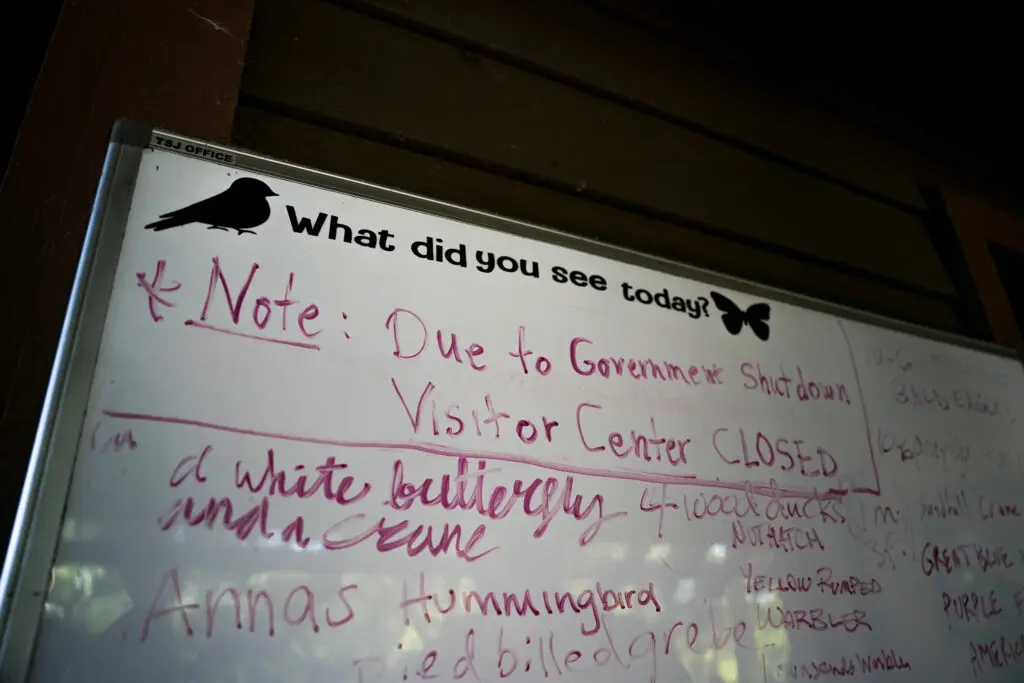 TSJ OFFICE
What did you see today?
* Note: Due to Government Shutdown
Visitor Center CLOSED
a white butterfly
and a crane
Annas Hummingbird
Pied billed grebe
4-wood ducks
NUTHATCH
YELLOW RUMPED
WARBLER
Townsends Warbler
BALD EAGLE
Sandhill Crane
GREAT BLUE
PURPLE